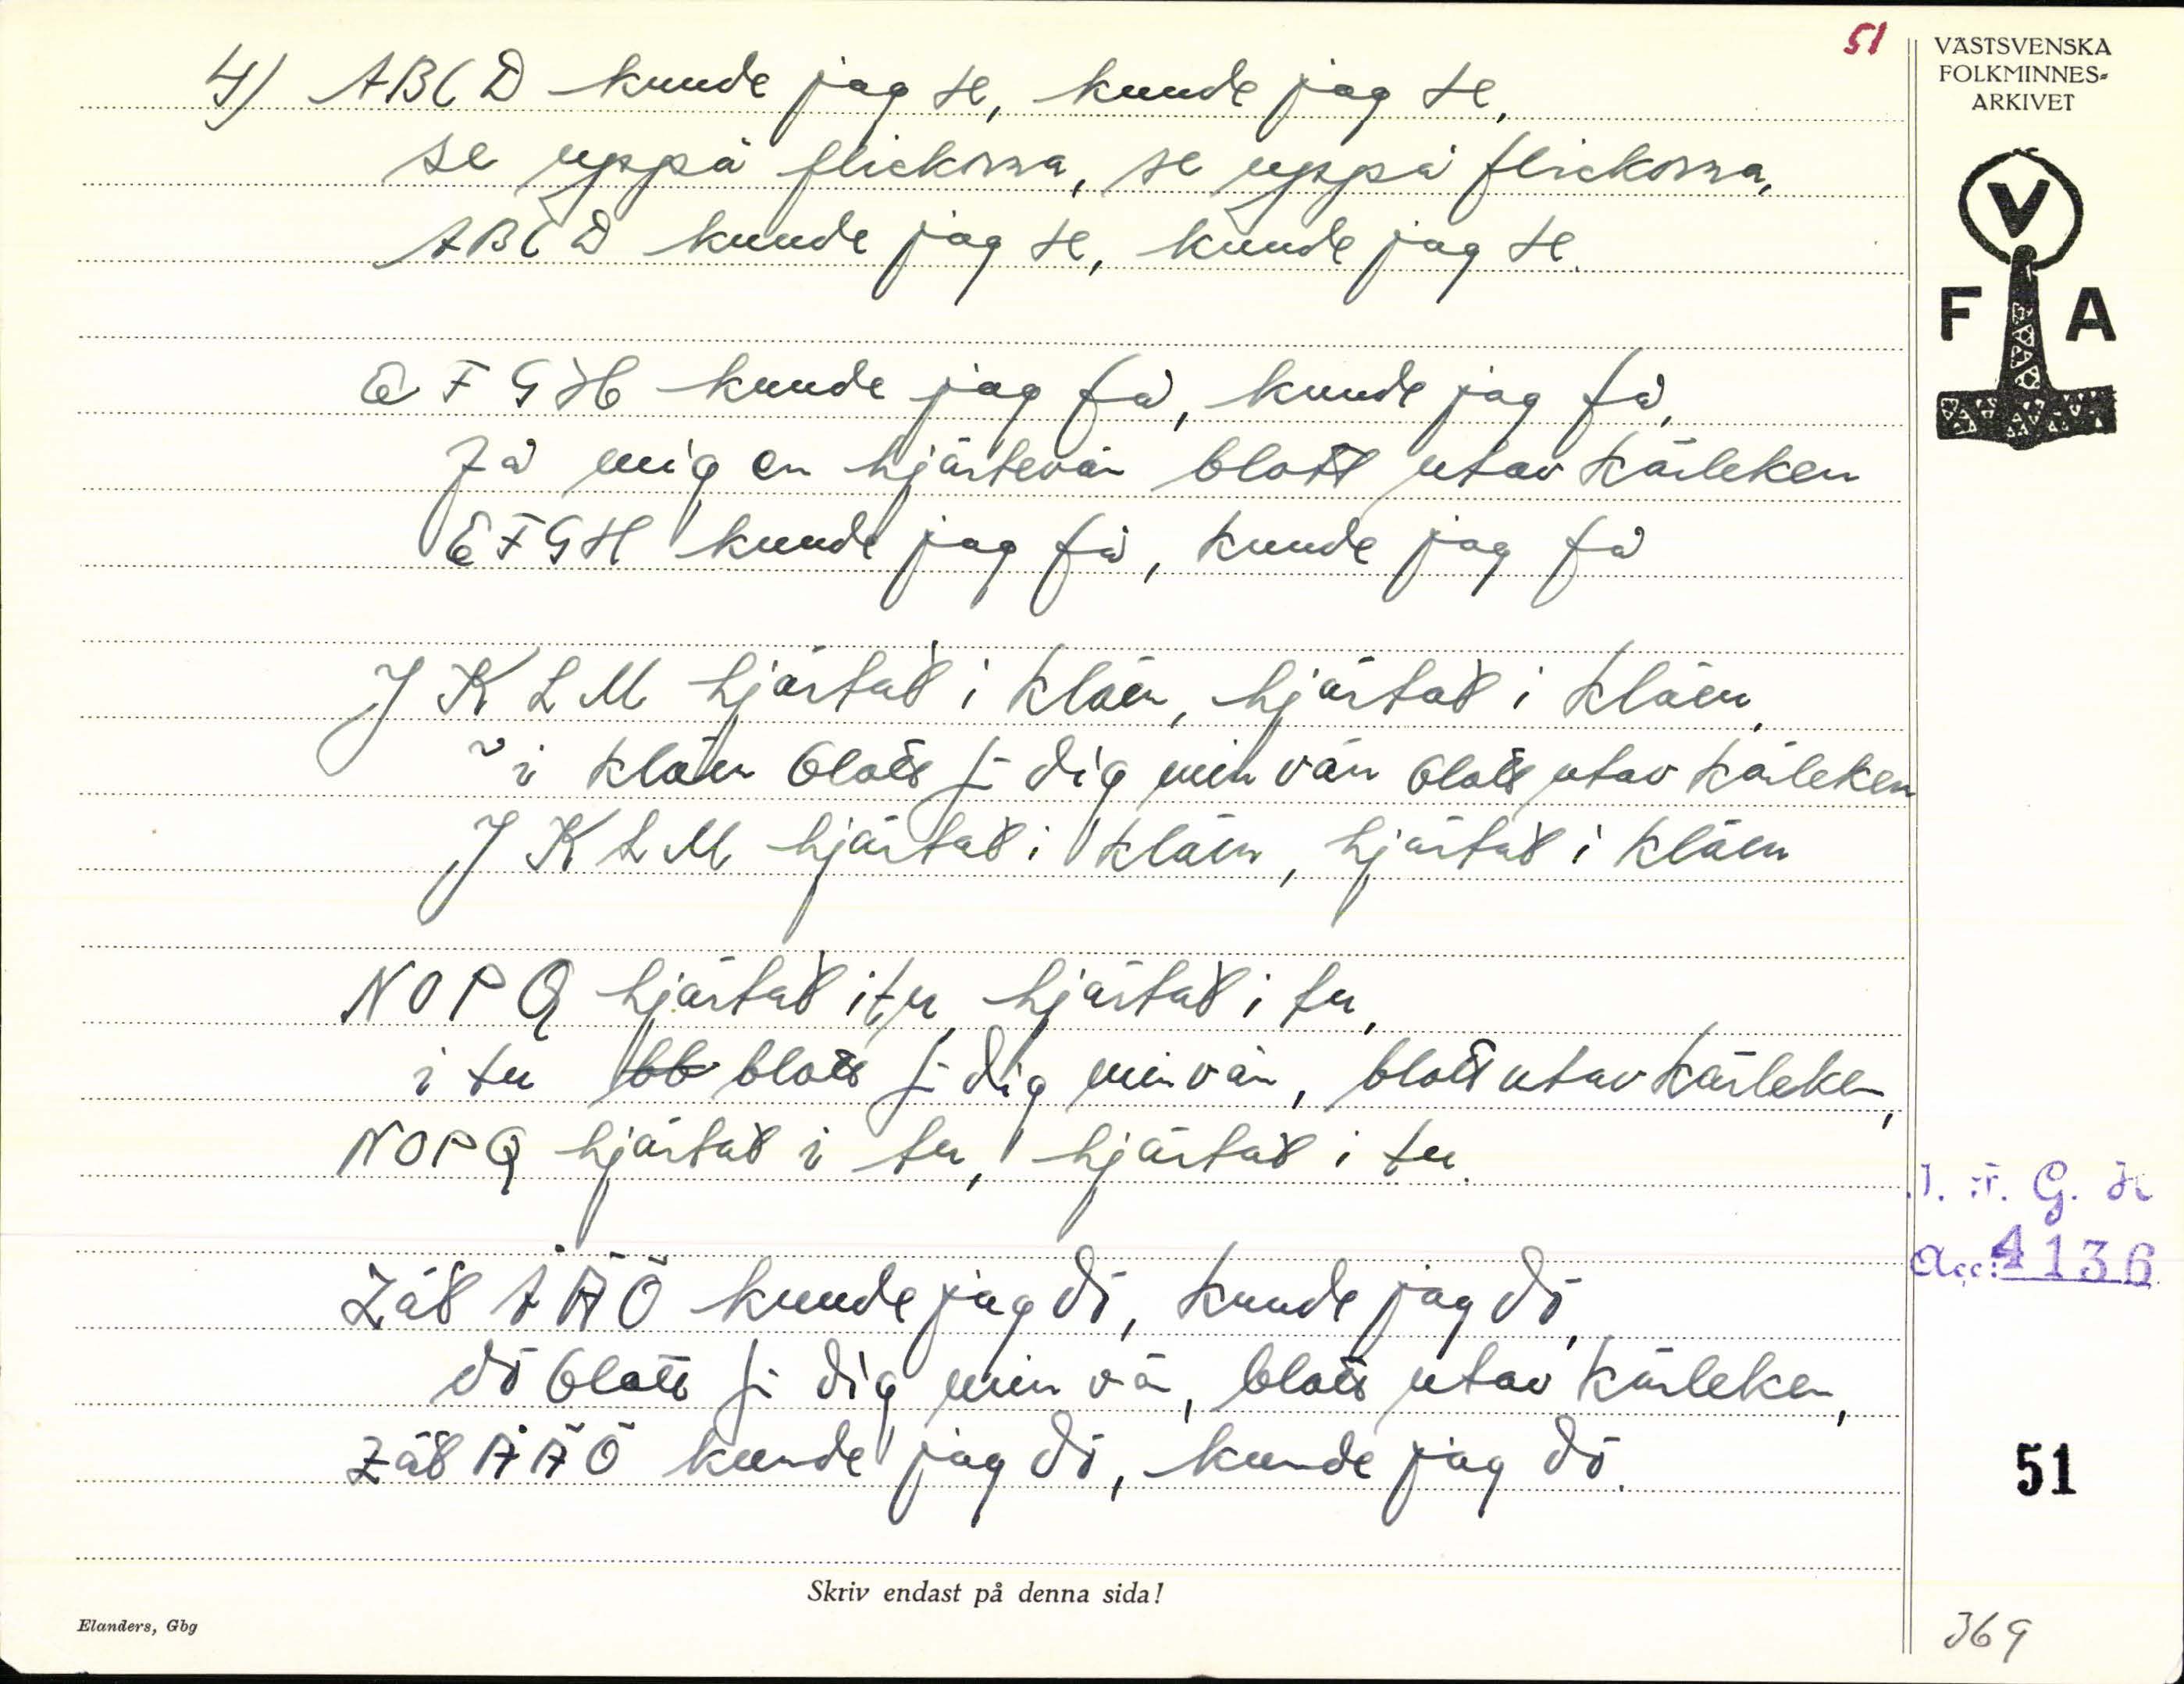 51
VÄSTSVENSKA
FOLKMINNES-
ARKIVET
V
F A
4) ABCD kunde jag se, kunde jag se,
se uppå flickorna, se uppå flickorna,
ABCD kunde jag se, kunde jag se.
E F G H kunde jag få, kunde jag få,
Få mig en hjärtevän blott utav kärleken
E F G H kunde jag få, kunde jag få
J K L M hjärtat i kläm, hjärtat i kläm,
i kläm blott f dig min vän blott utav kärleken
J K L M hjärtat i kläm, hjärtat i kläm
N O P Q hjärtat itu, hjärtat i tu,
i tu blott f dig min vän, blott utav kärleken,
NOPQ hjärtat i tu, hjärtat i tu.
Zät Å Ä Ö kunde jag dö, kunde jag dö,
dö blott f dig min vän, blott utav kärleken,
Zät Å Ä Ö kunde jag dö, kunde jag dö.
Acc: 4136
51
Skriv endast på denna sida!
Elanders, Gbg
369